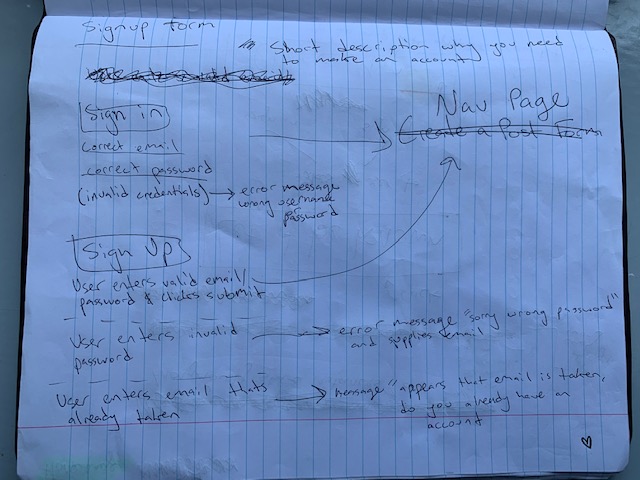 Signup form
" Short description why you need
to make an account"
Sign in
Correct email
correct password
(invalid credentials)
error message
wrong username
or
password
Nav Page
Create a Post Form
Sign Up
User enters valid email/
password & clicks submit
User enters invalid
password
error message "sorry wrong password"
and supplies email
User enters email thats
already taken
message "appears that email is taken,
do you already have an
account